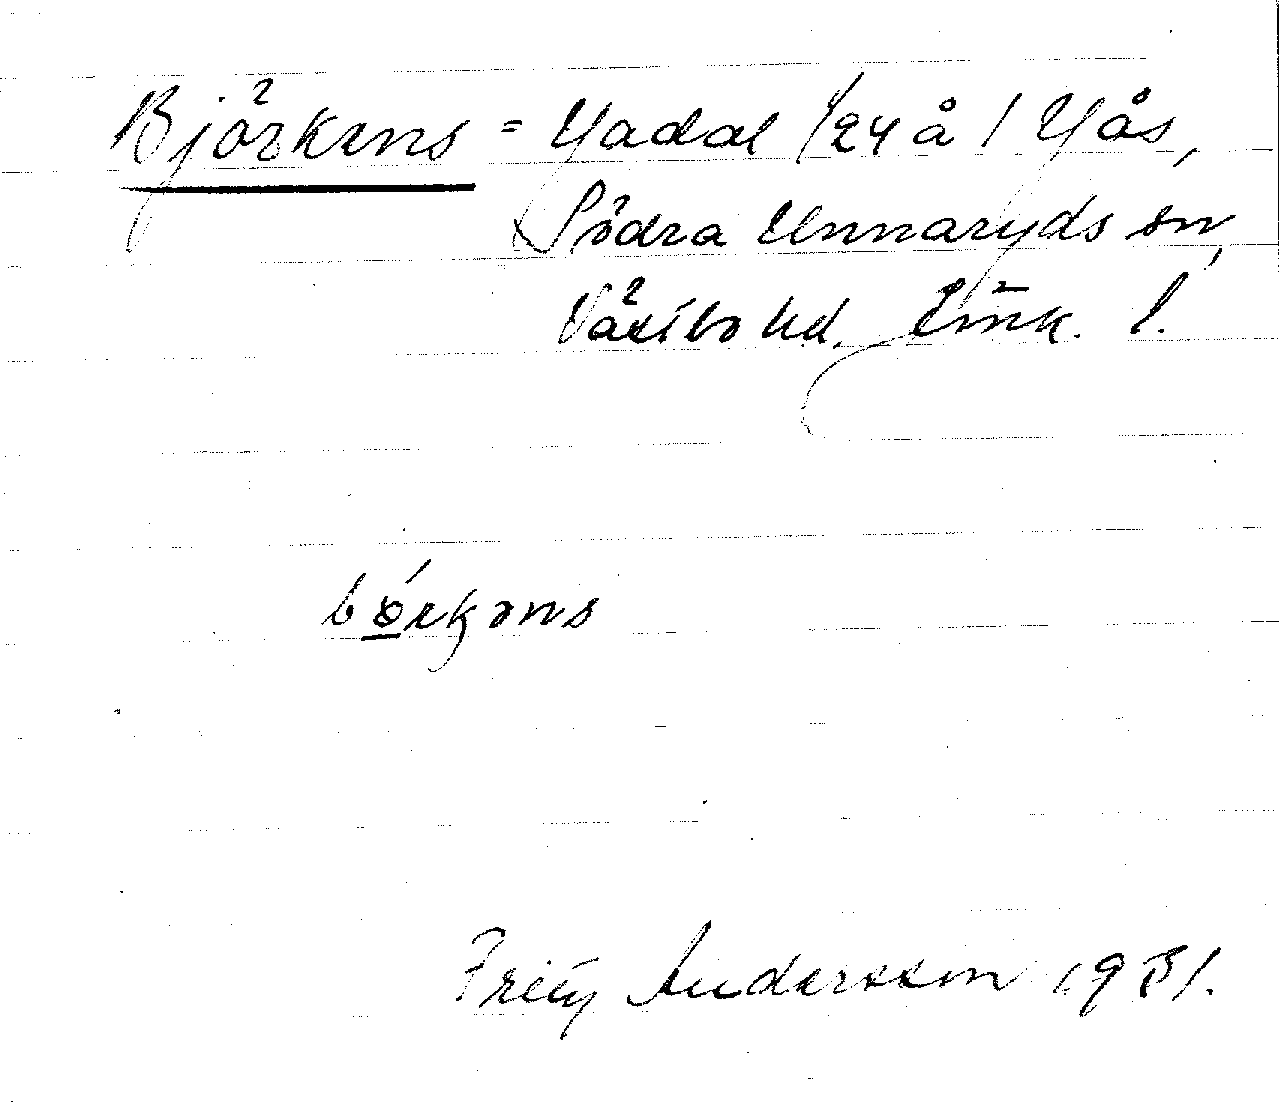 Björkens = Yadal /24 å / Yås,
Södra Unnaryds sn,
Västbo hd. Jönk. l.
bǿrkəns
Andersson 1931.